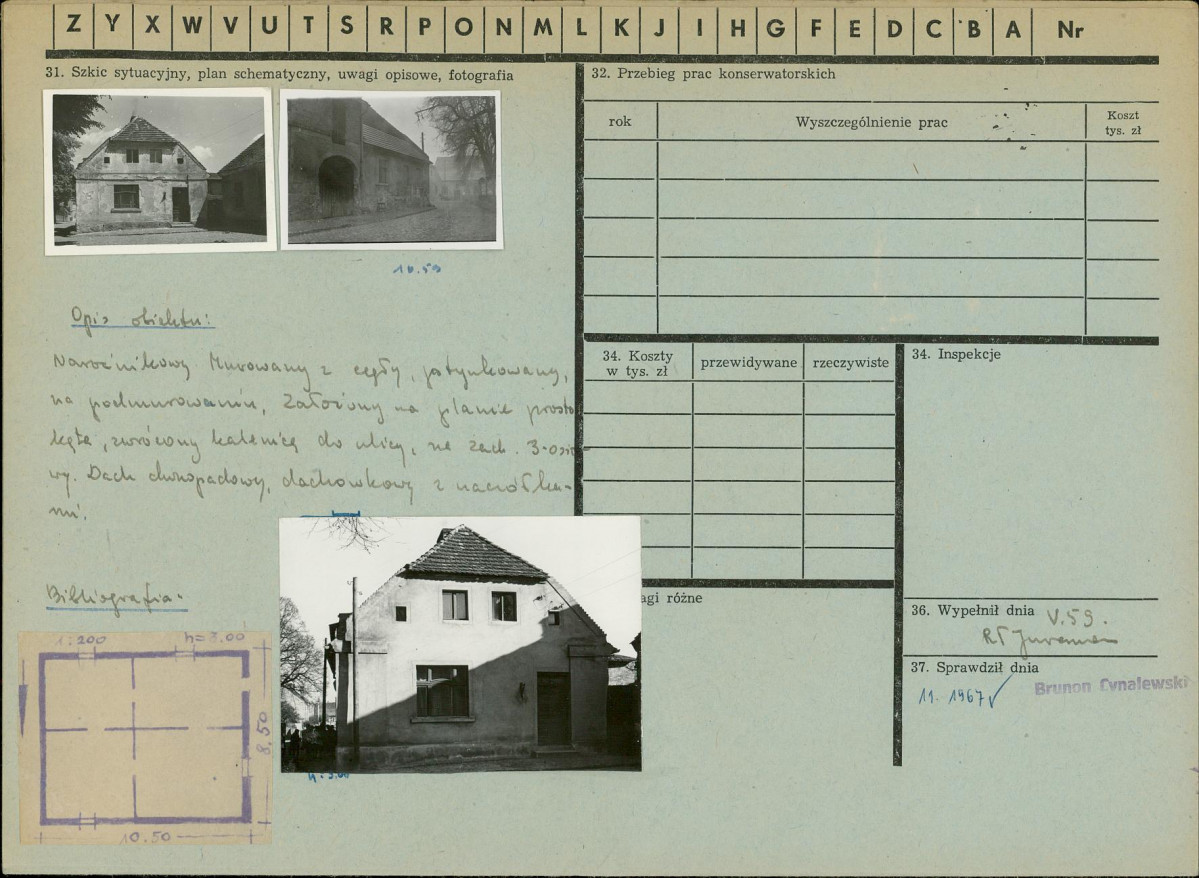 Z Y X W V U T S R P O N M L K J I H G F E D C B A Nr
31. Szkic sytuacyjny, plan schematyczny, uwagi opisowe, fotografia
10.59
Opis obiektu:
Narożnikowy Murowany z cegły, potynkowany,
na podmurowaniu, Założony na planie prosto
kąta, zwrócony kalenicą do ulicy, na zach. 3-osio-
wy. Dach dwuspadowy, dachówkowy z naczółka-
mi.
Bibliografia.
1:200 h=3.00
8.50
10.50
h=3.00
32. Przebieg prac konserwatorskich
rok
Wyszczególnienie prac
Koszt
tys. zł
34. Koszty
w tys. zł
przewidywane
rzeczywiste
34. Inspekcje
agi różne
36. Wypełnił dnia V.59.
37. Sprawdził dnia
11. 1967
Brunon Cynalewski